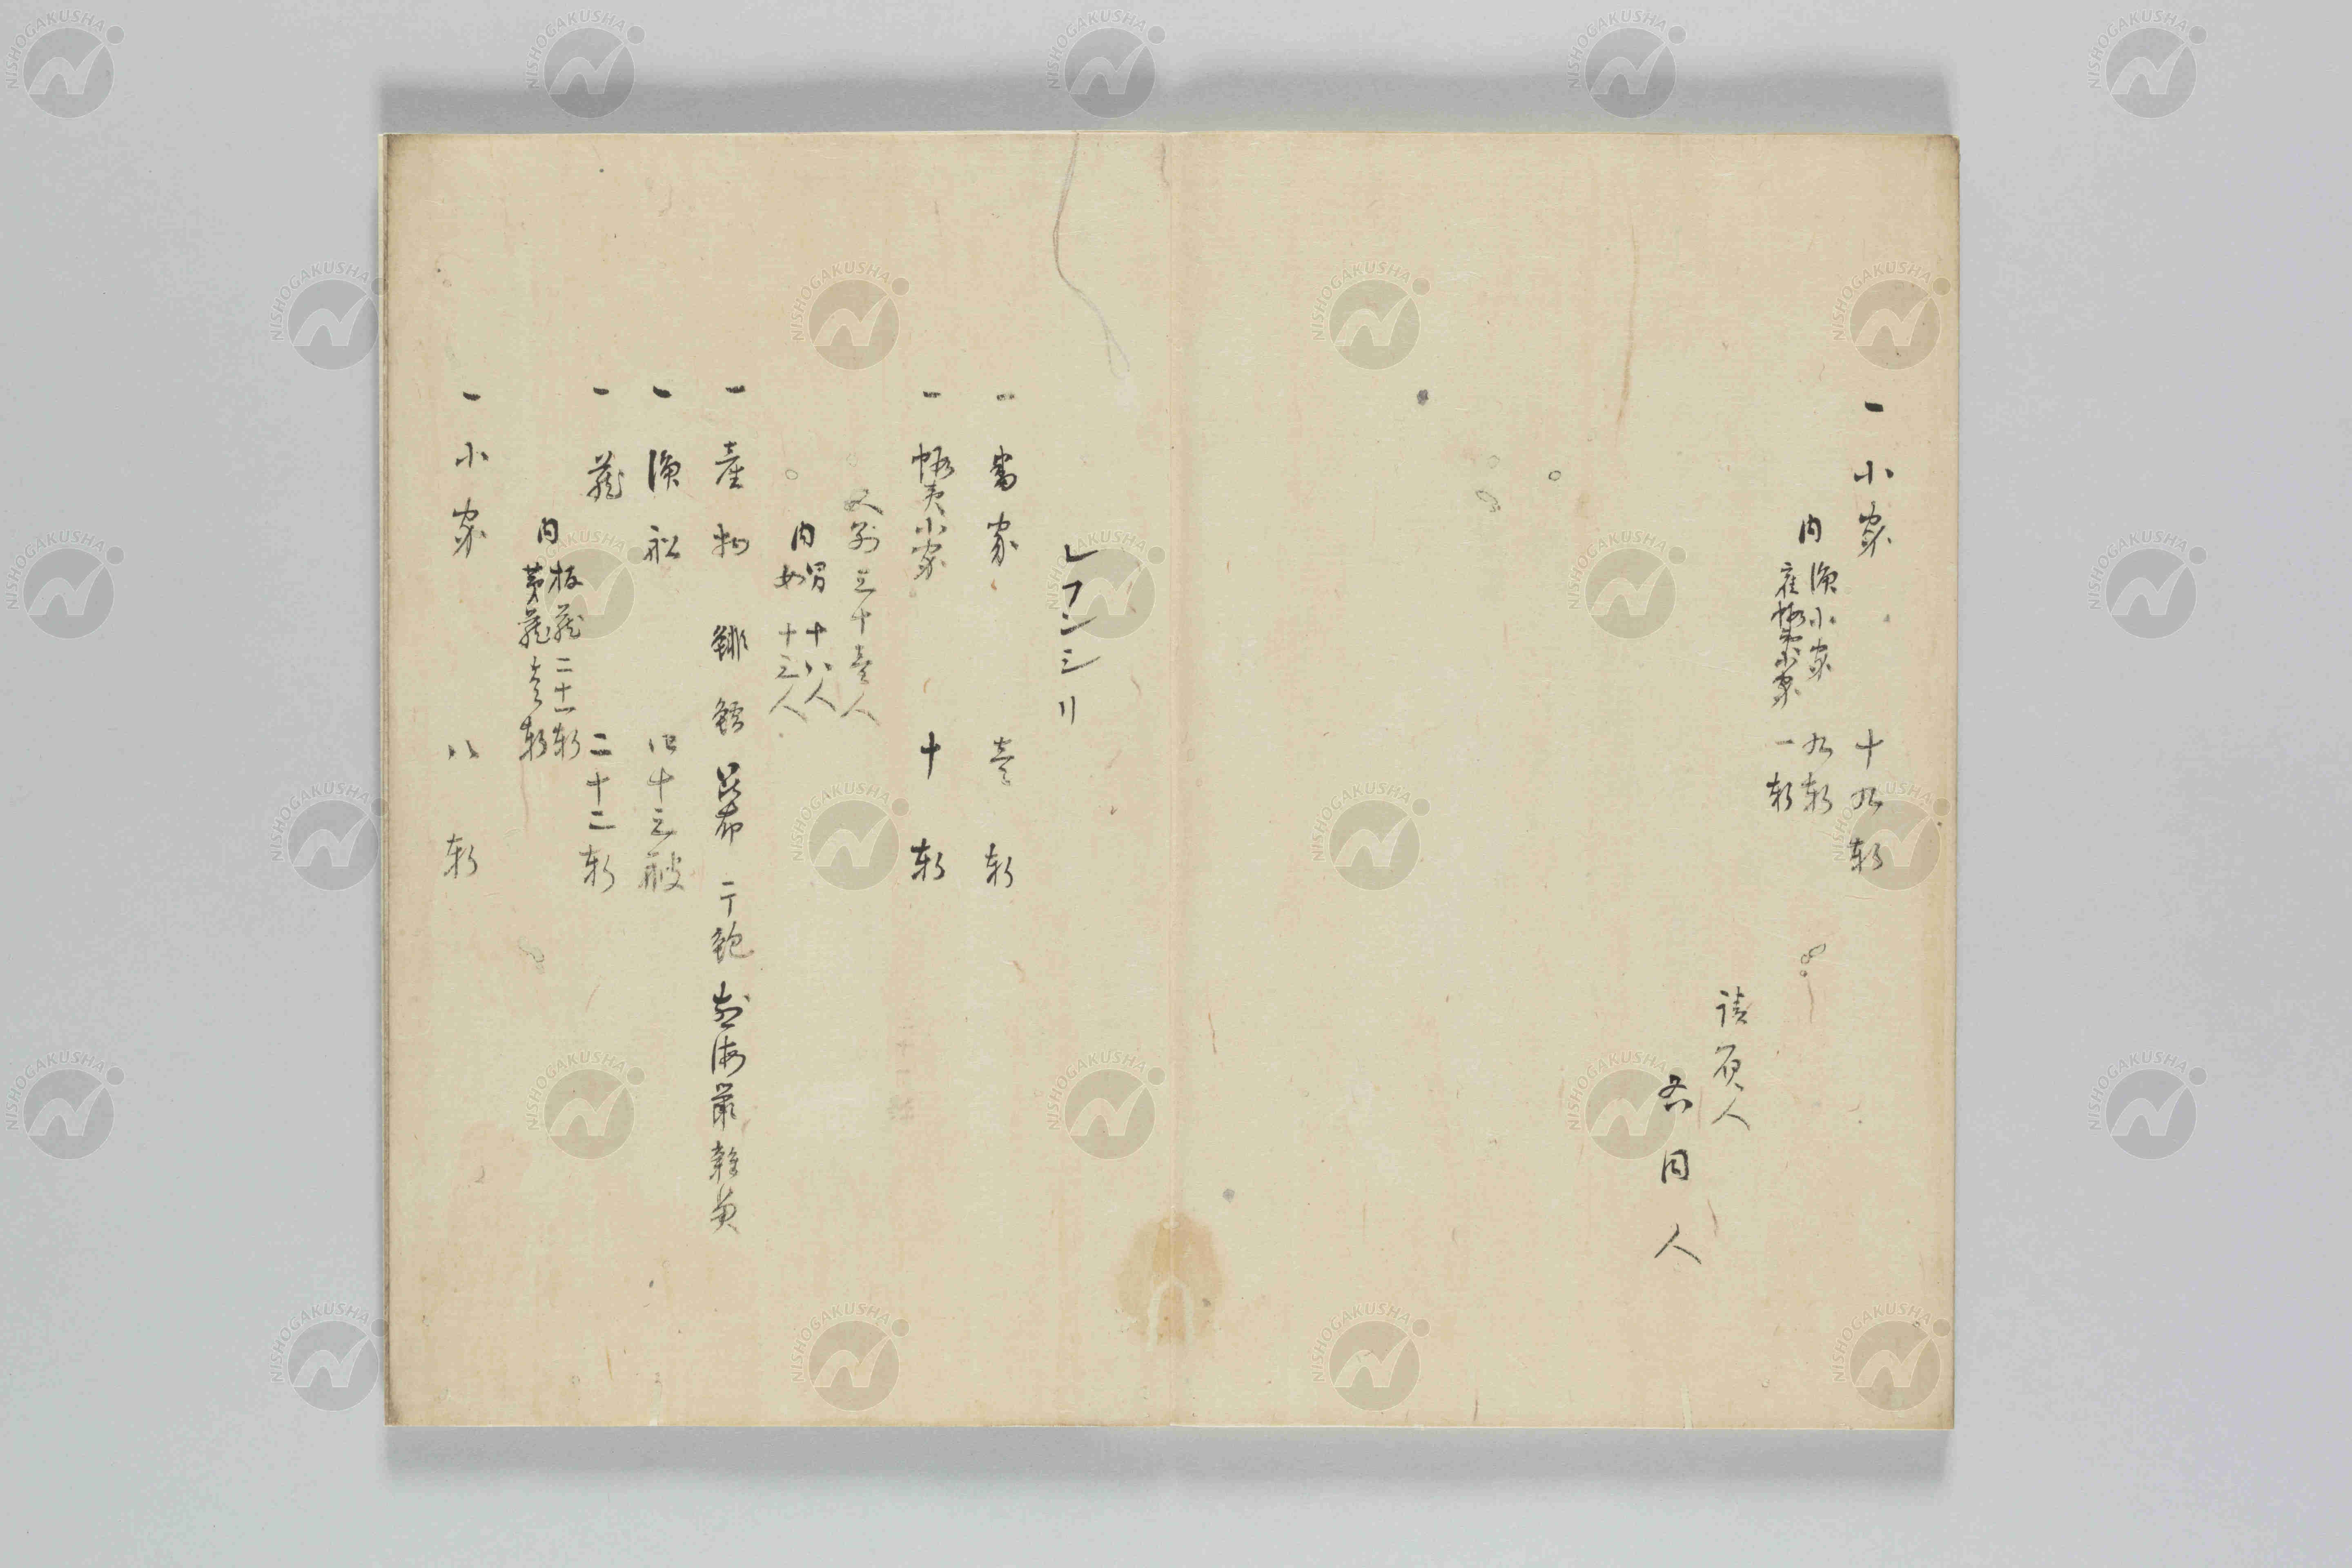 一 小家 十九軒
内 漁小家 九軒
雇蝦夷小家 一軒
請負人
右同人
レフンシリ
一 番家 壱軒
一 蝦夷小家 十軒
人別三十壱人
内 男 十八人
女 十三人
一 産物 鯡 鱈 昆布 干鮑 煎海鼠 雑魚
一 漁船 四十三艘
一 蔵 二十二軒
内 板蔵 二十一軒
茅蔵 壱軒
一 小家 八軒